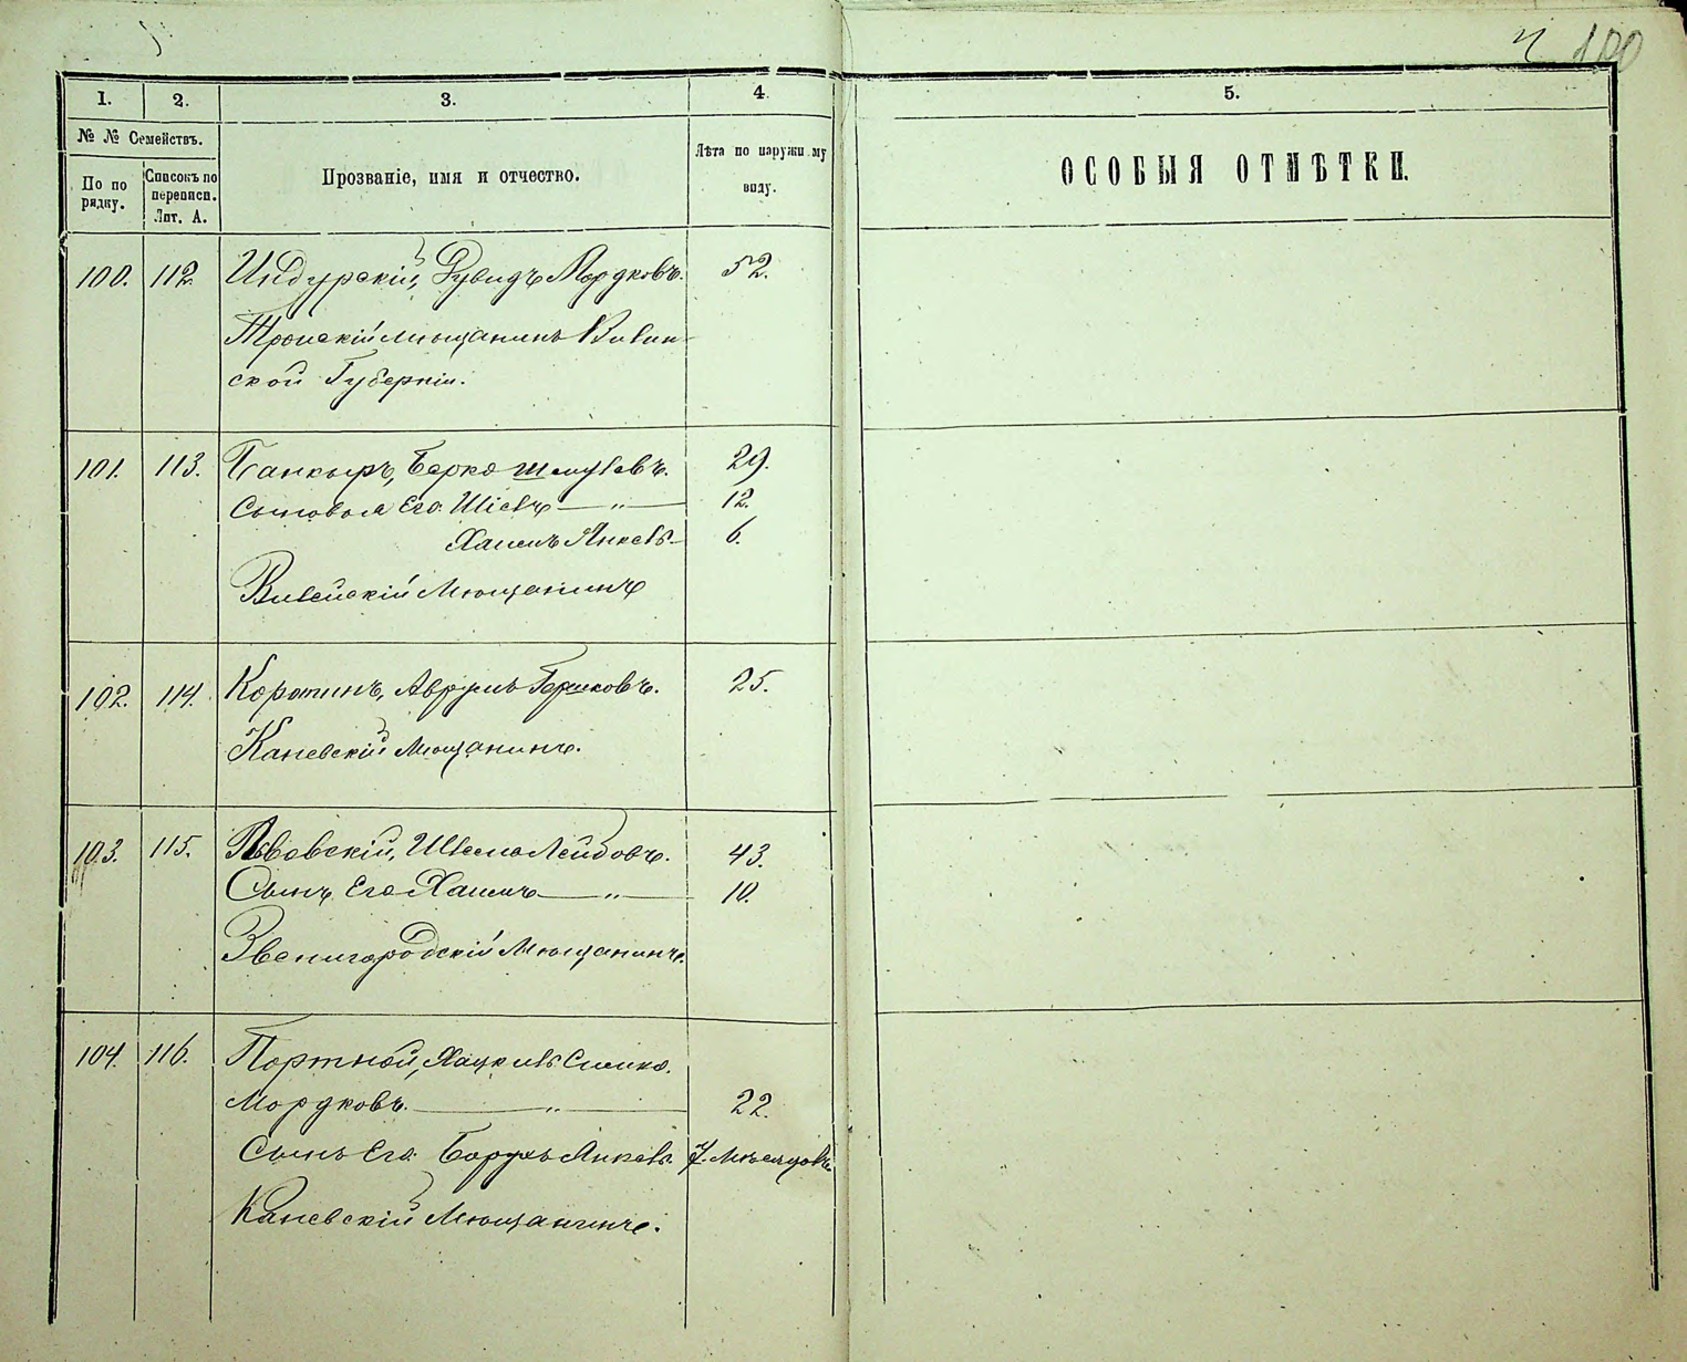 100
1. 2. 3. 4. 5.
№ № Семействъ.
По по рядку.
Списокъ по переписи. Лит. А.
Прозваніе, имя и отчество.
Лѣта по наружному виду.
ОСОБЫЯ ОТМѢТКИ.
100. 112. Индурскій, Рувидъ Мордковъ. 52.
Трокскій мѣщанинъ Вилен-
ской Губерніи.
101. 113. Банкыръ, Берко Шмулевъ. 29.
Сыновья Его: — „ — 12.
Хаимъ Янкель 6.
Вилейскій Мѣщанинъ
102. 114. Коротинъ, Аврумъ Бершковъ. 25.
Каневскій Мѣщанинъ.
103. 115. Львовскій, Шлема Лейбовъ. 43.
Сынъ Его Хаимъ — „ — 10.
Звенигородскій Мѣщанинъ.
104. 116. Портной, Хацкель Симко.
Мордковъ. — „ — 22.
Сынъ Его: Борухъ Янкель. 7. Мѣсяцовъ.
Каневскій Мѣщанинъ.